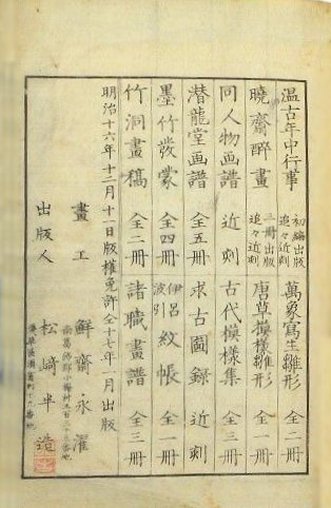 温古年中行事 初編出版 追々近刻 萬象寫生雛形 全二冊
曉齋醉畫 三冊出版 追々近刻 唐草摸様雛形 全一冊
同人物画譜 近刻 古代摸様集 全三冊
潜龍堂画譜 全五冊 求古圖錄 近刻
墨竹發蒙 全四冊 伊呂波引 紋帳 全一冊
竹洞畫稿 全二冊 諸職畫譜 全三冊
明治十六年十二月十一日版權免許仝十七年一月出版
畫工 鮮齋永濯
出版人 松﨑半造